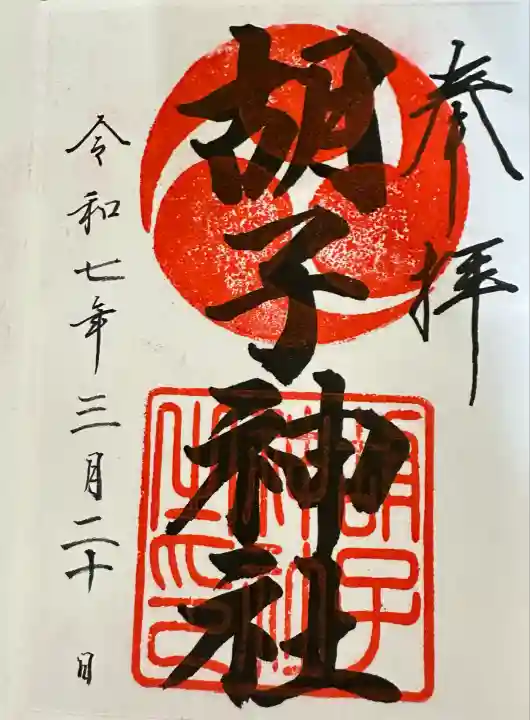 奉拝
胡子神社
令和七年三月二十日
胡子
神社
之印